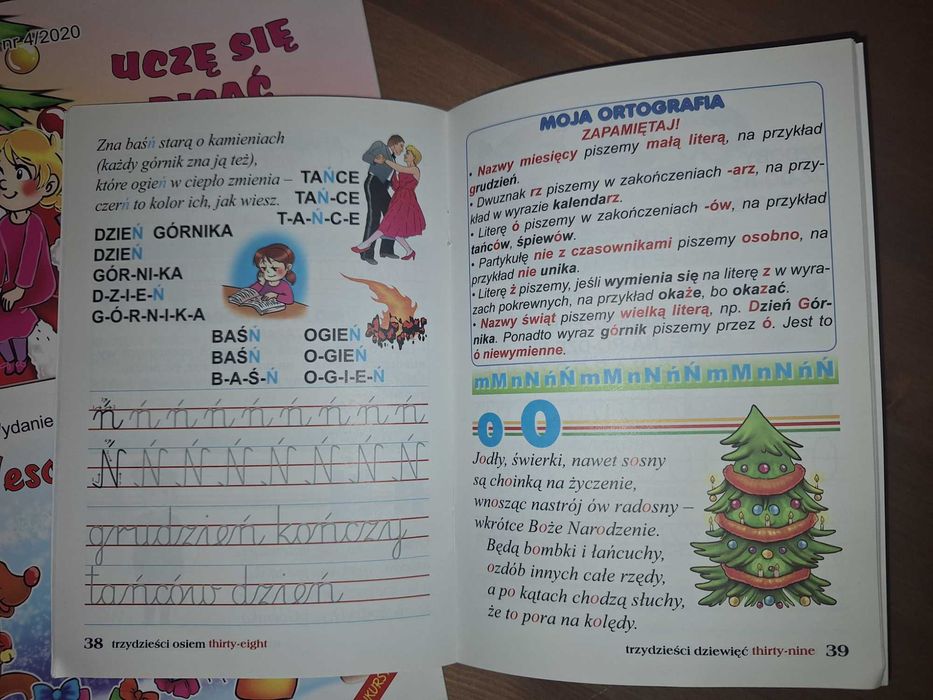 nr 4/2020
UCZĘ SIĘ
PISAĆ
Wydanie
Zna baśń starą o kamieniach
(każdy górnik zna ją też),
które ogień w ciepło zmienia –
czerń to kolor ich, jak wiesz.
TAŃCE
TAŃ-CE
T-A-Ń-C-E
DZIEŃ GÓRNIKA
DZIEŃ
GÓR-NI-KA
D-Z-I-E-Ń
G-Ó-R-N-I-K-A
BAŚŃ OGIEŃ
BAŚŃ O-GIEŃ
B-A-Ś-Ń O-G-I-E-Ń
ń ń ń ń ń ń ń ń ń
Ń Ń Ń Ń Ń Ń Ń Ń
grudzień kończy
tańców dzień
38 trzydzieści osiem thirty-eight
MOJA ORTOGRAFIA
ZAPAMIĘTAJ!
• Nazwy miesięcy piszemy małą literą, na przykład
grudzień.
• Dwuznak rz piszemy w zakończeniach -arz, na przy-
kład w wyrazie kalendarz.
• Literę ó piszemy w zakończeniach -ów, na przykład
tańców, śpiewów.
• Partykułę nie z czasownikami piszemy osobno, na
przykład nie unika.
• Literę ż piszemy, jeśli wymienia się na literę z w wyra-
zach pokrewnych, na przykład okaże, bo okazać.
• Nazwy świąt piszemy wielką literą, np. Dzień Gór-
nika. Ponadto wyraz górnik piszemy przez ó. Jest to
ó niewymienne.
mM nN ńŃ mM nN ńŃ mM nN ńŃ
o O
Jodły, świerki, nawet sosny
są choinką na życzenie,
wnosząc nastrój ów radosny –
wkrótce Boże Narodzenie.
Będą bombki i łańcuchy,
ozdób innych całe rzędy,
a po kątach chodzą słuchy,
że to pora na kolędy.
trzydzieści dziewięć thirty-nine 39